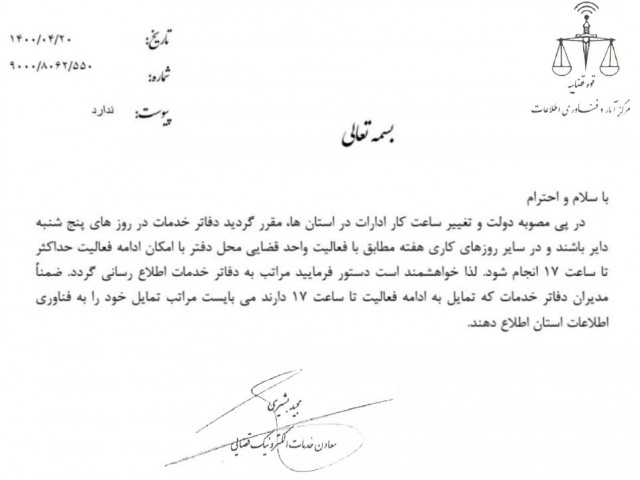 قوه قضاییه
مرکز آمار و فناوری اطلاعات
تاریخ: ۱۴۰۰/۰۴/۲۰
شماره: ۹۰۰۰/۸۰۶۲/۵۵۰
پیوست: ندارد
بسمه تعالی
با سلام و احترام
در پی مصوبه دولت و تغییر ساعت کار ادارات در استان ها، مقرر گردید دفاتر خدمات در روز های پنج شنبه
دایر باشند و در سایر روزهای کاری هفته مطابق با فعالیت واحد قضایی محل دفتر با امکان ادامه فعالیت حداکثر
تا ساعت ۱۷ انجام شود. لذا خواهشمند است دستور فرمایید مراتب به دفاتر خدمات اطلاع رسانی گردد. ضمناً
مدیران دفاتر خدمات که تمایل به ادامه فعالیت تا ساعت ۱۷ دارند می بایست مراتب تمایل خود را به فناوری
اطلاعات استان اطلاع دهند.
مجید بشیری
معاون خدمات الکترونیک قضائی